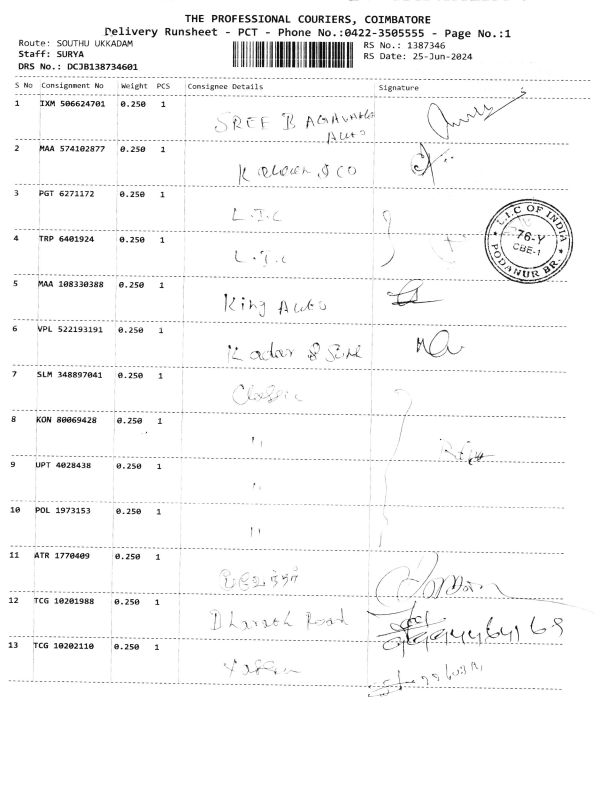 THE PROFESSIONAL COURIERS, COIMBATORE
Delivery Runsheet - PCT - Phone No.:0422-3505555 - Page No.:1
Route: SOUTHU UKKADAM
Staff: SURYA
DRS No.: DCJB138734601
RS No.: 1387346
RS Date: 25-Jun-2024
S No Consignment No Weight PCS Consignee Details Signature
1 IXM 506624701 0.250 1
SREE BAGAVATHI
Auto
2 MAA 574102877 0.250 1
& CO
3 PGT 6271172 0.250 1
L.I.C
4 TRP 6401924 0.250 1
L.I.C
L.I.C OF INDIA
76-Y
CBE-1
PODANUR BR.
5 MAA 108330388 0.250 1
King Auto
6 VPL 522193191 0.250 1
Kadar & Sine
7 SLM 348897041 0.250 1
Classic
8 KON 80069428 0.250 1
"
9 UPT 4028438 0.250 1
"
10 POL 1973153 0.250 1
"
11 ATR 1770409 0.250 1
12 TCG 10201988 0.250 1
Bharath Road
13 TCG 10202110 0.250 1